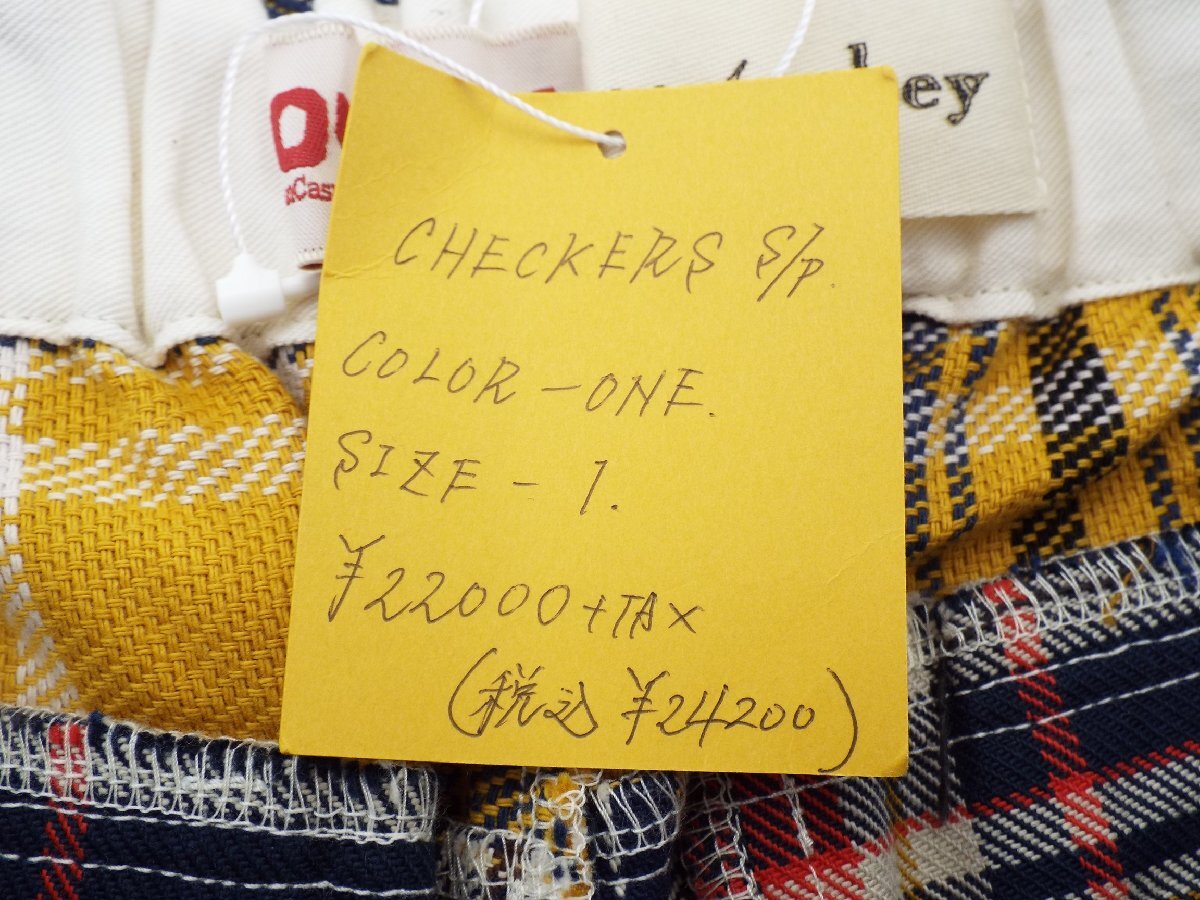 ey
CHECKERS S/P.
COLOR - ONE.
SIZE - 1.
¥22000+TAX
(税込 ¥24200)